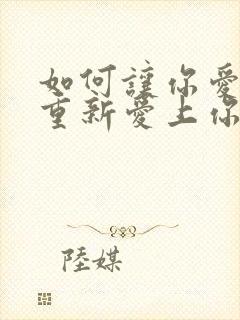 如何讓你愛
重新愛上你
陸媒